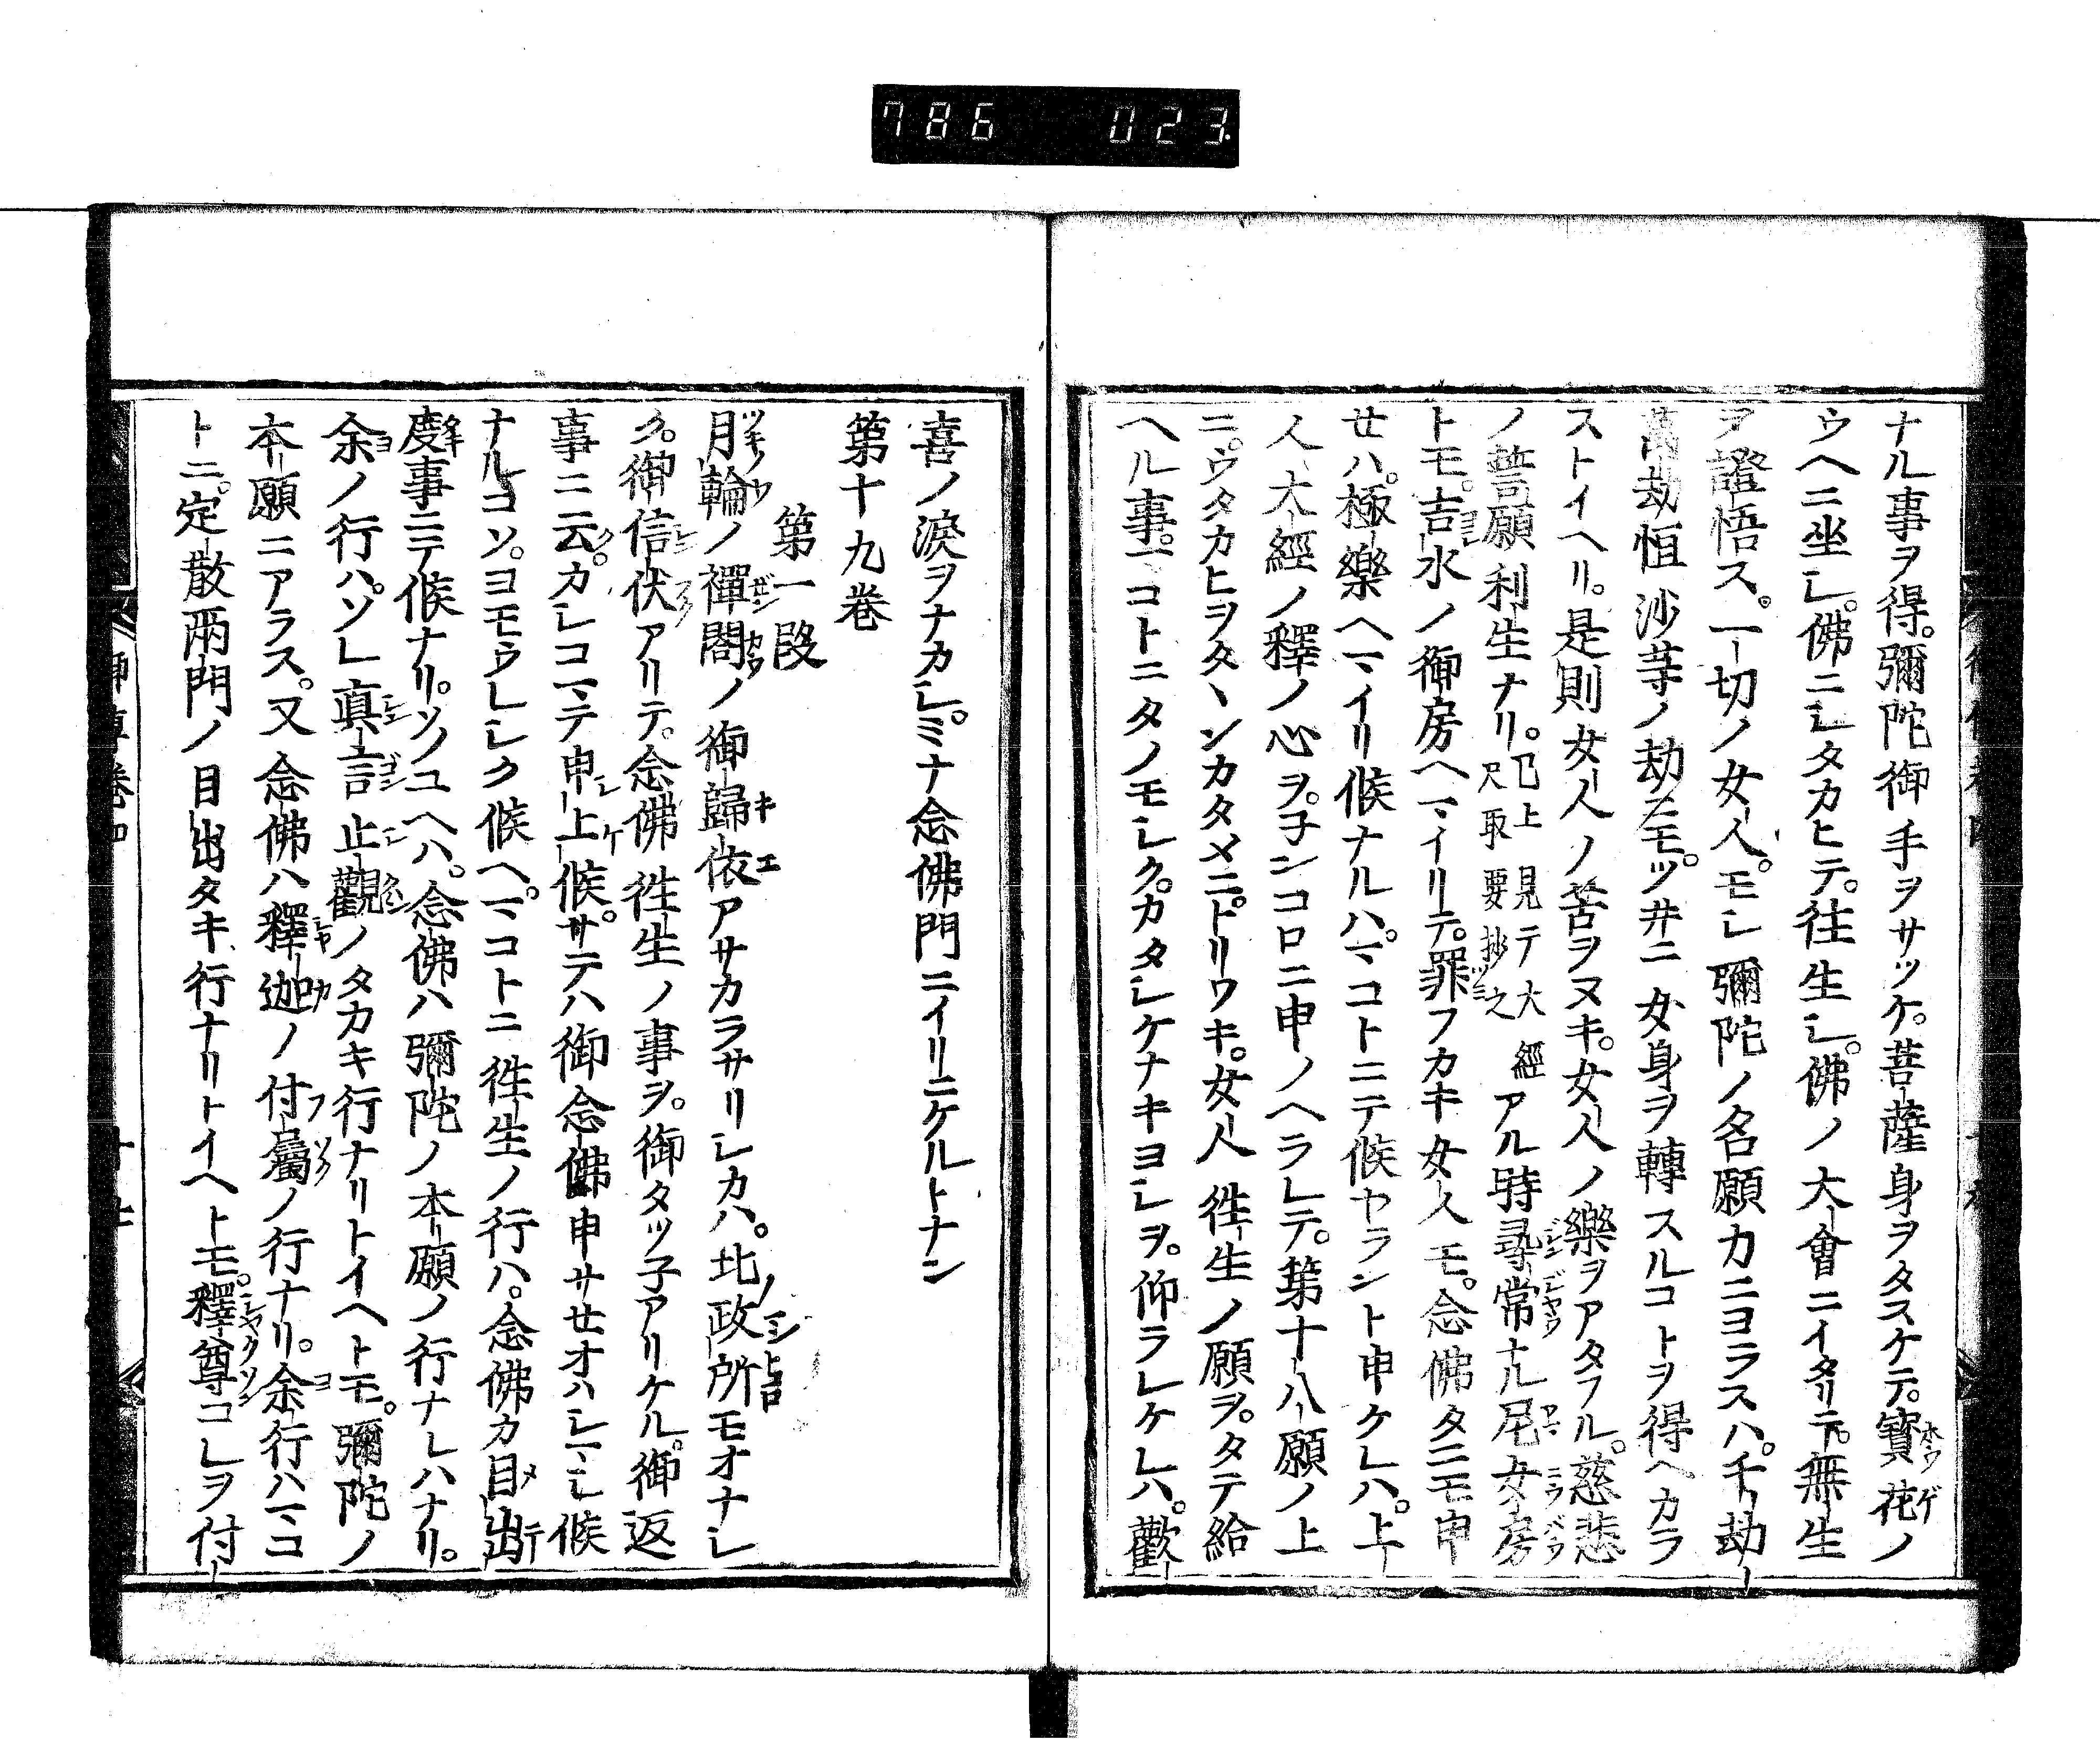 786 023
ナル事ヲ得。彌陀御手ヲサツケ。菩薩身ヲタスケテ。寳花ノ
ウヘニ坐シ。佛ニシタカヒテ。往生シ。佛ノ大會ニイタリテ。無生
ヲ證悟ス。一切ノ女人。モシ彌陀ノ名願カニヨラスハ。千劫
萬劫恒沙等ノ劫ニモ。ツ井ニ女身ヲ轉スルコトヲ得ヘカラ
ストイヘリ。是則女人ノ苦ヲヌキ。女人ノ樂ヲアタフル。慈悲
ノ誓願利生ナリ。已上見テ大經尺取要抄之アル時尋常ナル尼女房
トモ。吉水ノ御房ヘマイリテ。罪フカキ女人モ。念佛タニモ申
セハ。極樂ヘマイリ候ナルハ。マコトニテ候ヤラント申ケレハ。上
人大經ノ釋ノ心ヲ。子ンコロニ申ノヘラレテ。第十八願ノ上
ニ。ウタカヒヲタヽンカタメニ。トリワキ。女人往生ノ願ヲ。タテ給
ヘル事。マコトニタノモシク。カタシケナキヨシヲ。仰ラレケレハ。歡
喜ノ淚ヲナカシ。ミナ念佛門ニイリニケルトナン
第十九巻
第一段
月輪ノ禪閤ノ御歸依アサカラサリシカハ。北政所モオナシ
ク。御信伏アリテ。念佛往生ノ事ヲ。御タツ子アリケル。御返
事ニ云。カシコマテ申上候。サテハ御念佛申サセオハシマシ候
ナルコソ。ヨモウレシク候ヘ。マコトニ往生ノ行ハ。念佛カ目出
度事ニテ候ナリ。ソノユヘハ。念佛ハ彌陀ノ本願ノ行ナレハナリ。
余ノ行ハ。ソレ眞言止觀ノタカキ行ナリトイヘトモ。彌陀ノ
本願ニアラス。又念佛ハ釋迦ノ付屬ノ行ナリ。余行ハマコ
トニ。定散兩門ノ目出タキ行ナリトイヘトモ。釋尊コレヲ付